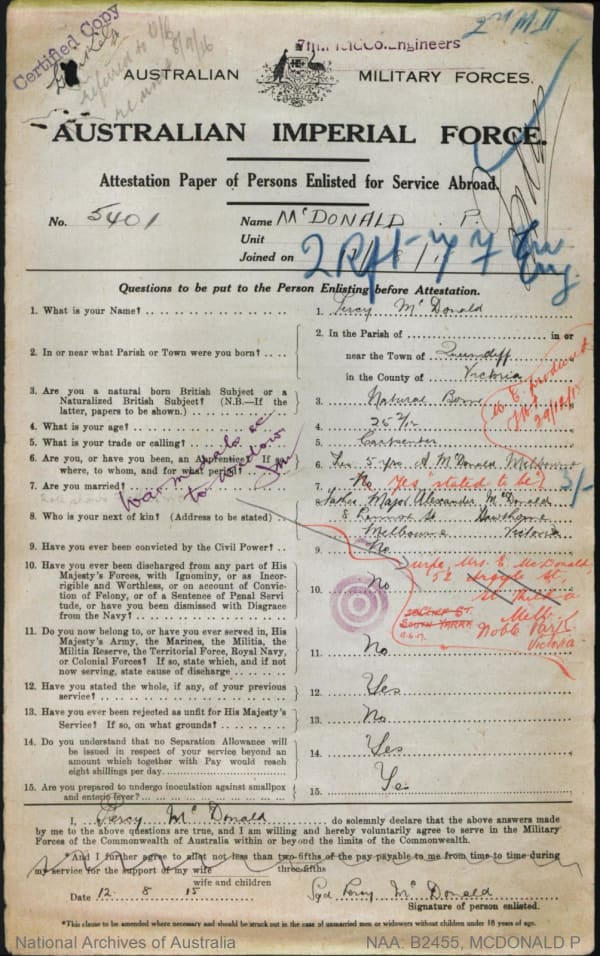 Certified Copy
referred to
8/9/16
7th Field Co. Engineers
2nd M D
AUSTRALIAN MILITARY FORCES.
AUSTRALIAN IMPERIAL FORCE.
Attestation Paper of Persons Enlisted for Service Abroad.
No. 5401 Name McDONALD P.
Unit
Joined on
Questions to be put to the Person Enlisting before Attestation.
1. What is your Name? 1. Percy McDonald
2. In or near what Parish or Town were you born? 2. In the Parish of in or
near the Town of
in the County of Victoria
3. Are you a natural born British Subject or a
Naturalized British Subject? (N.B.—If the
latter, papers to be shown.) 3. Natural Born
4. What is your age? 4. 25 2/12
5. What is your trade or calling? 5. Carpenter
6. Are you, or have you been, an Apprentice? If so
where, to whom, and for what period? 6. Yes 5 yrs A. McDonald Melbourne
7. Are you married? 7. No Yes (stated to be) 3/-
War medals etc
to widow
8. Who is your next of kin? (Address to be stated) 8. Father Major Alexander McDonald
Melbourne Victoria
9. Have you ever been convicted by the Civil Power? 9. No
Mrs. E. McDonald
52 Argyle St,
St Kilda
Melb.
SOUTH YARRA
Noble Park
Victoria
10. Have you ever been discharged from any part of His
Majesty's Forces, with Ignominy, or as Incor-
rigible and Worthless, or on account of Convic-
tion of Felony, or of a Sentence of Penal Servi-
tude, or have you been dismissed with Disgrace
from the Navy? 10. No
11. Do you now belong to, or have you ever served in, His
Majesty's Army, the Marines, the Militia, the
Militia Reserve, the Territorial Force, Royal Navy,
or Colonial Forces? If so, state which, and if not
now serving, state cause of discharge 11. No
12. Have you stated the whole, if any, of your previous
service? 12. Yes
13. Have you ever been rejected as unfit for His Majesty's
Service? If so, on what grounds? 13. No
14. Do you understand that no Separation Allowance will
be issued in respect of your service beyond an
amount which together with Pay would reach
eight shillings per day. 14. Yes
15. Are you prepared to undergo inoculation against smallpox
and enteric fever? 15. Yes
I, Percy McDonald do solemnly declare that the above answers made
by me to the above questions are true, and I am willing and hereby voluntarily agree to serve in the Military
Forces of the Commonwealth of Australia within or beyond the limits of the Commonwealth.
*And I further agree to allot not less than two-fifths of the pay payable to me from time to time during
three-fifths
my service for the support of my wife
wife and children
Date 12. 8 15 Sgd Percy McDonald
Signature of person enlisted.
*This clause to be amended where necessary and should be struck out in the case of unmarried men or widowers without children under 18 years of age.
National Archives of Australia NAA: B2455, MCDONALD P